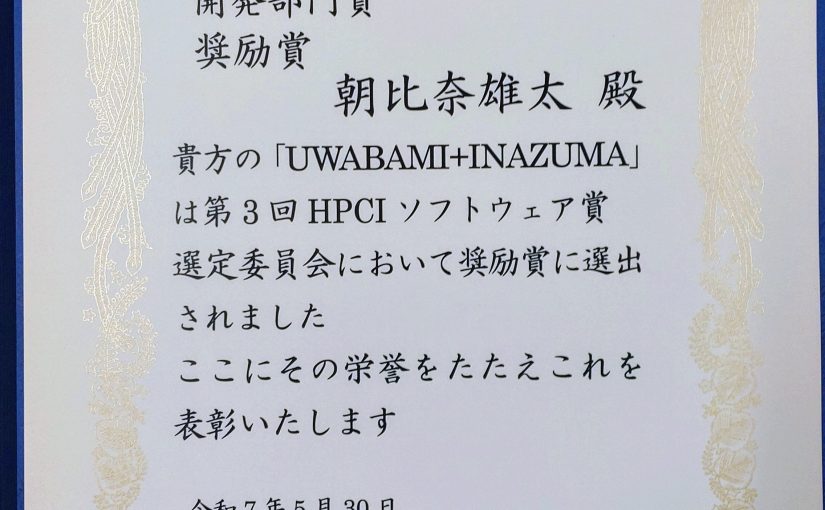 開発部門賞
奨励賞
朝比奈雄太 殿
貴方の「UWABAMI+INAZUMA」
は第3回HPCIソフトウェア賞
選定委員会において奨励賞に選出
されました
ここにその栄誉をたたえこれを
表彰いたします
令和7年5月30日